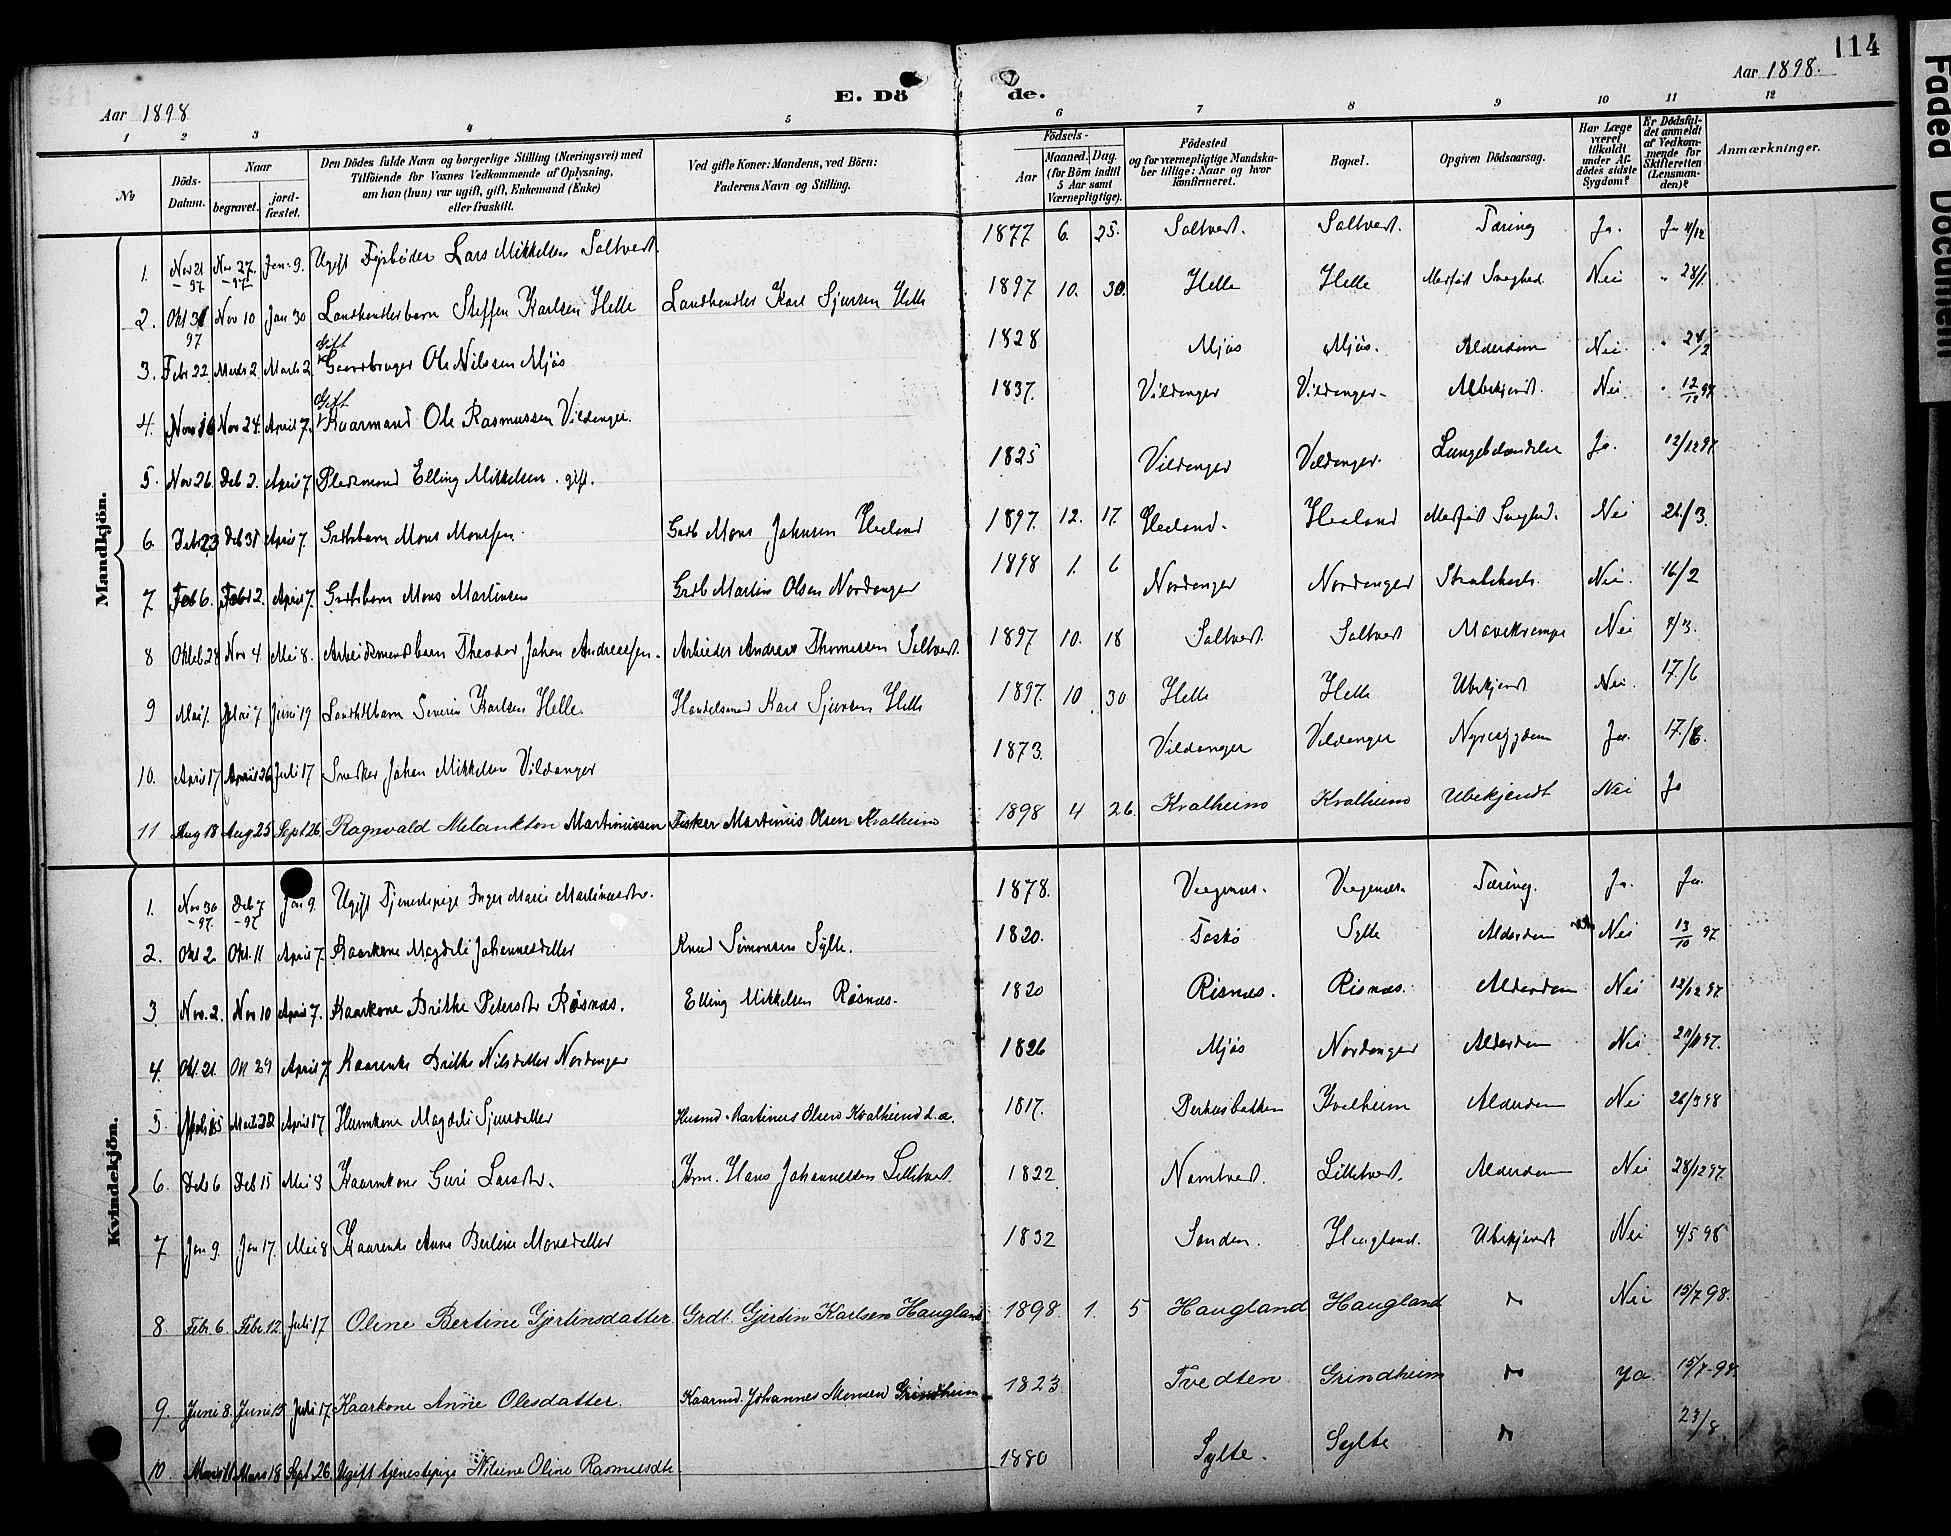 114
Aar 1898
E. Dö de.
Aar 1898.
1 2 3 4 5 6 7 8 9 10 11 12
No
Döds-Datum.
Naar
begravet.
jord-fæstet.
Den Dödes fulde Navn og borgerlige Stilling (Næringsvei) med
Tilföiende for Voxnes Vedkommende af Oplysning,
om han (hun) var ugift, gift, Enkemand (Enke)
eller fraskilt.
Ved gifte Koner: Mandens, ved Börn:
Faderens Navn og Stilling.
Födsels-
Aar
Maaned. Dag.
(for Börn indtil
5 Aar samt
Værnepligtige).
Födested
og for værnepligtige Mandska-
ber tillige: Naar og hvor
Konfirmeret.
Bopæl.
Opgiven Dödsaarsag.
Har Læge
været
tilkaldt
under Af-
dödes sidste
Sygdom?
Er Dödsfal-
det anmeldt
af Vedkom-
mende for
Skifteretten
(Lensman-
den)?
Anmærkninger.
Mandkjön.
1. Nov 21 -97 Nov 27. -97- Jan 9. Ugift Fyrbøder Lars Mikkelsen Saltvert. 1877 6. 25. Saltvert. Saltvert. Tæring Ja. Ja 4/12
2. Okt 31 97 Nov 10 Jan 30 Landhandlerbarn Steffen Karlsen Helle Landhandler Karl Sjursen Helle 1897 10. 30. Helle Helle Medfødt Svaghed Nei " 28/1.
3. Febr 22. Marts 2. Marts 2 Gift Gaardbruger Ole Nilssen Mjøs 1828 Mjøs Mjøs. Alderdom Nei. " 24/2
4. Nov 16 Nov 24. April 7. Gift Kaarmand Ole Rasmussen Vildanger. 1837. Vildanger Vildanger. Ubekjendt. Nei. " 12/12 97
5. Nov 26. Deb 2. April 7 Pladsmand Elling Mikkelsen. gift. 1825 Vildanger Vildanger. Ja. 12/12 97
6. Debr 23 Deb 31 April 7. Grdbbarn Mons Monssen Grdb Mons Johnsen Hæland 1897. 12. 17. Hæland. Hæland Medfødt Svaghed. Nei 26/3.
7. Feb 6. Febr 12. April 7. Grdbbarn Mons Martinsen Grdb Martin Olsen Nordanger 1898 1. 6 Nordanger Nordanger Nei. 16/2
8 Oktob 28 Nov 4. Mai 8. Arbeidsmandsbarn Theodor Johan Andreassen. Arbeider Andreas Thomassen Saltvert. 1897 10. 18 Saltvert. Saltvert Mavekrampe Nei 8/3.
9 Mai 1. Mai 7 Juni 19 Landhdlbarn Severin Karlsen Helle. Handelsmand Karl Sjursen Helle 1897. 10 30 Helle Helle Ubekjendt Nei. 17./6
10. April 17 April 26 Juli 17 Snedker Johan Mikkelsen Vildanger 1873. Vildanger Vildanger Nyresygdom Ja. 17./6.
11 Aug 18 Aug 25 Sept 26. Ragnvald Melankton Martinussen Fisker Martinus Olsen Kvalheim 1898 4 26. Kvalheim Kvalheim Ubekjendt Nei Ja
Kvindekjön.
1. Nov 30 -97. Deb 7 -97 Jan 9. Ugift Tjenestepige Inger Marie Martinusdtr. 1878. Vaagenæs. Vaagenæs. Tæring. Ja. Ja.
2. Okt 2 Okt. 11 April 7. Kaarkone Magdeli Johannesdatter Knud Simonsen Sylte. 1820. Toskø Sylte Alderdom Nei 13/10 97
3 Nov. 2. Nov 10 April 7. Kaarkone Brithe Petersdtr Risnæs. Elling Mikkelsen Risnæs. 1820 Risnæs. Risnæs. Alderdom Nei 12/12 97.
4. Okt. 21. Okt 29 April 7. Kaarenke Brithe Nilsdatter Nordanger 1826 Mjøs Nordanger Alderdom Nei
5 Marts 15 Marts 22 April 17 Huusmkone Magdeli Sjursdatter Husmd. Martinus Olsen Kvalheim d.æ. 1817. Kvalheim Alderdom Nei 26/3 98
6. Deb 6 Deb 15 Mai 8 Kaarmkone Guri Larsdtr. Krm. Hans Johannessen Lilletvert. 1822. Namtvert. Lilletvert. Alderdom Nei 28/12 97.
7 Jan 9. Jan 17. Mai 8 Kaarenke Anne Berline Monsdatter 1832 Sanden. Haugland. Ubekjendt Nei 4/5 98
8 Febr. 6. Febr. 12 Juli 17 Oline Bertine Gjertinsdatter Grdb. Gjertin Karlsen Haugland 1898. 1. 5 Haugland Haugland do Nei 15/7 98.
9. Juni 8. Juni 15 Juli 17 Kaarkone Anne Olesdatter. Kaarmd. Johannes Monsen Grindheim 1823 Tvedten Grindheim do ya 15/7-98.
10. Mars 11 Mars 18 Sept. 26 Ugift tjenestepige Nilsine Oline Rasmusdtr. 1880 Sylte. Sylte do 23/8.
Faded Document